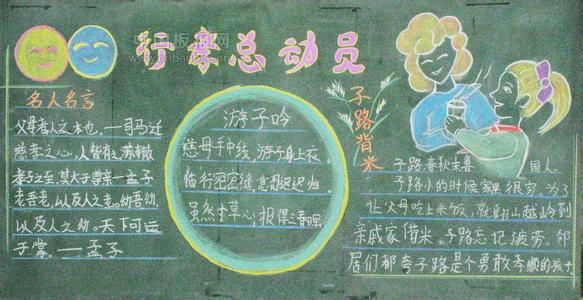 行孝总动员
名人名言
父母者人之本也。——司马迁
慈孝之心,人皆有之,苏辙
孝子之至,莫大于尊亲—孟子
老吾老,以及人之老。幼吾幼
以及人之幼。天下可运
于掌。——孟子
游子吟
慈母手中线,游子身上衣。
临行密密缝,意恐迟迟归。
虽然寸草心,报得三春晖。
子路背米
子路,春秋末鲁 国人。
子路小的时候家里很穷,为了
让父母吃上米饭,就翻山越岭到
亲戚家借米。子路忘记疲劳。邻
居们都夸子路是个勇敢孝顺的孩子